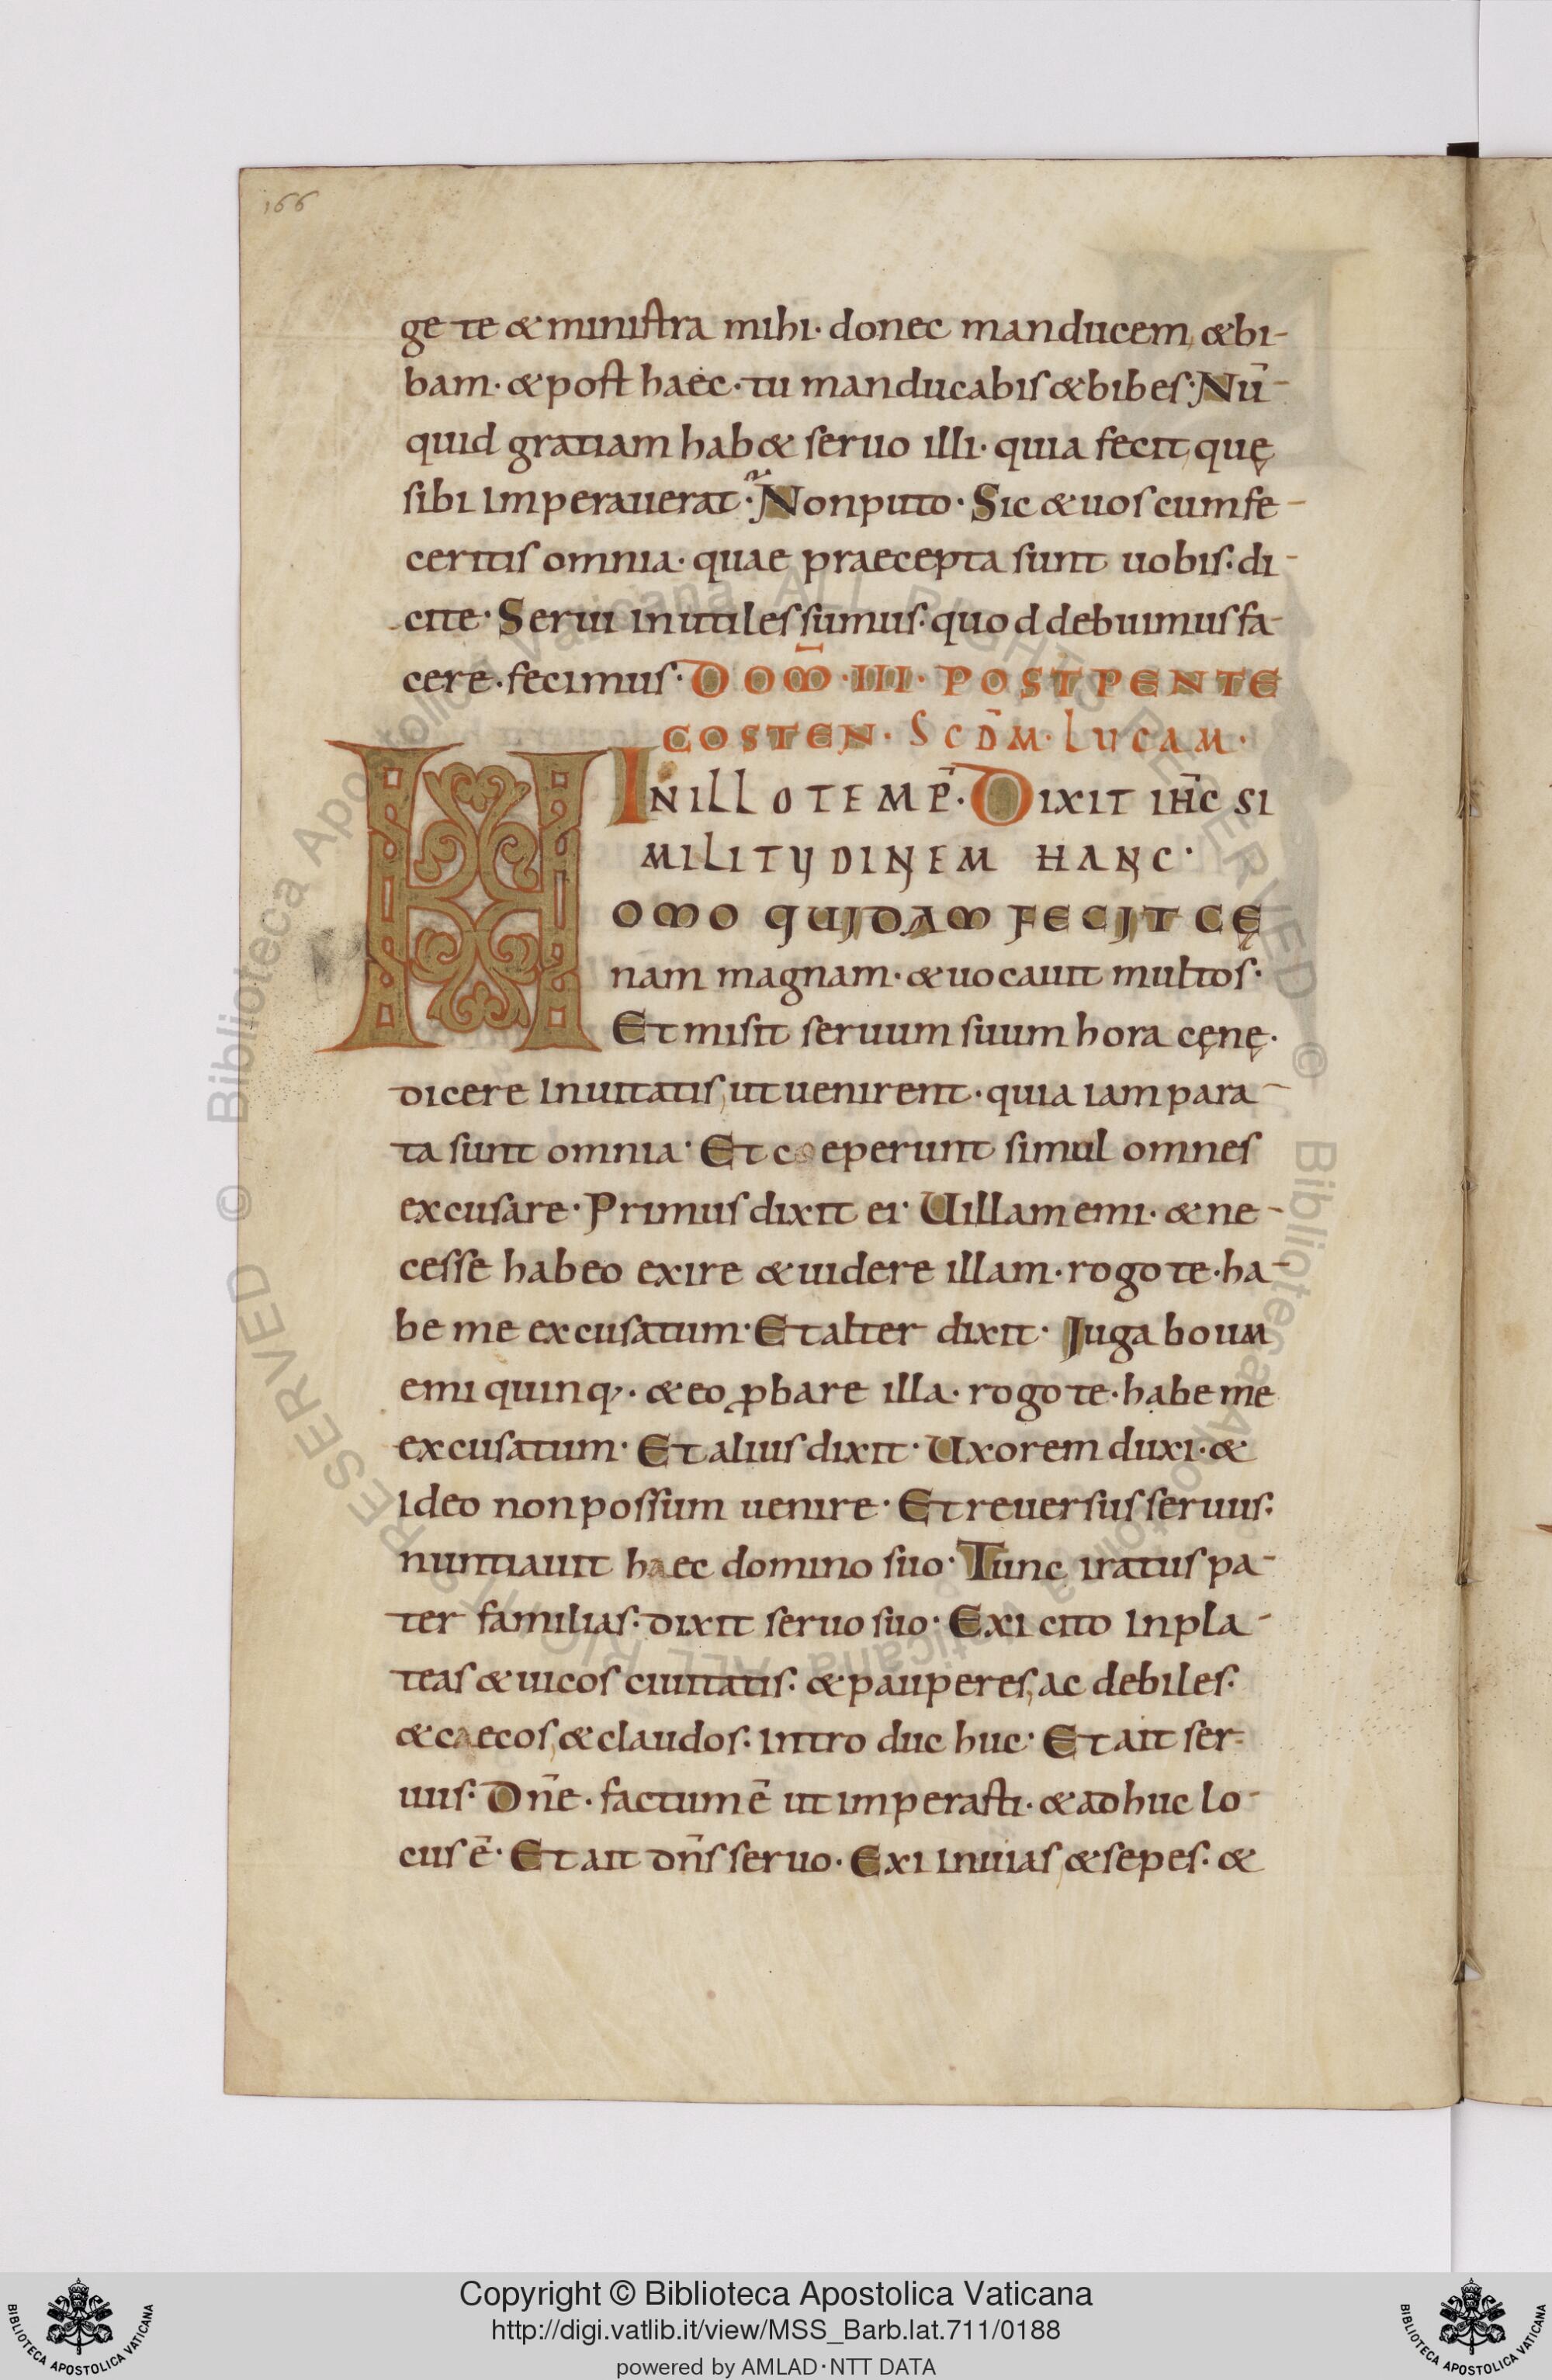 166
ge te & ministra mihi· donec manducem, & bi-
bam· & post haec· tu manducabis & bibes· Nū-
quid gratiam hab& seruo illi· quia fecit, quę
sibi imperauerat· Non puto· Sic & uos cum fe-
ceritis omnia· quae praecepta sunt uobis· di-
cite· Serui inutiles sumus· quod debuimus fa-
cere· fecimus· DOM̄· III· POST PENTE
COSTEN· SCDM̄· LUCAM·
IN ILLO TEMP̄· DIXIT IH̄C SI
MILITUDINEM HANC·
HOMO QUIDAM FECIT CĘ
nam magnam· & uocauit multos·
Et misit seruum suum hora cęnę·
dicere inuitatis, ut uenirent· quia iam para-
ta sunt omnia· Et coeperunt simul omnes
excusare· Primus dixit ei· Uillam emi· & ne-
cesse habeo exire & uidere illam· rogo te· ha-
be me excusatum· Et alter dixit· Juga boum
emi quinq;· & eo ꝓbare illa· rogo te· habe me
excusatum· Et alius dixit· Uxorem duxi· &
ideo non possum uenire· Et reuersus seruus·
nuntiauit haec domino suo· Tunc iratus pa-
ter familias· dixit seruo suo· Exi cito in pla-
teas & uicos ciuitatis· & pauperes, ac debiles·
& caecos, & claudos· intro duc huc· Et ait ser-
uus· Dn̄e· factum ē ut imperasti· & adhuc lo-
cus ē· Et ait dn̄s seruo· Exi in uias, & sepes· &
© Biblioteca Apostolica Vaticana ALL RIGHTS RESERVED © Biblioteca Apostolica Vaticana ALL RIGHTS RESERVED
Copyright © Biblioteca Apostolica Vaticana
http://digi.vatlib.it/view/MSS_Barb.lat.711/0188
powered by AMLAD·NTT DATA
BIBLIOTECA APOSTOLICA VATICANA
BIBLIOTECA APOSTOLICA VATICANA